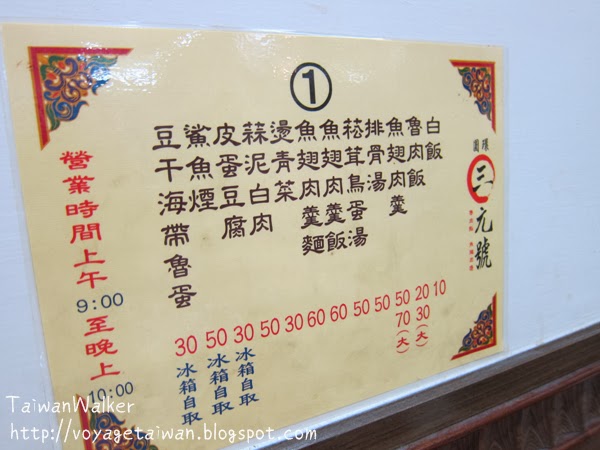 ①
圓環
三元號
白飯 10
魯肉飯 20 30(大)
魚翅肉羹 50 70(大)
排骨湯 50
菘茸鳥蛋湯 50
魚翅肉羹飯 60
魚翅肉羹麵 60
燙青菜 30
蒜泥白肉 50
皮蛋豆腐 30 冰箱自取
鯊魚煙 50 冰箱自取
豆干海帶魯蛋 30 冰箱自取
營業時間上午9:00至晚上10:00
TaiwanWalker
http://voyagetaiwan.blogspot.com/